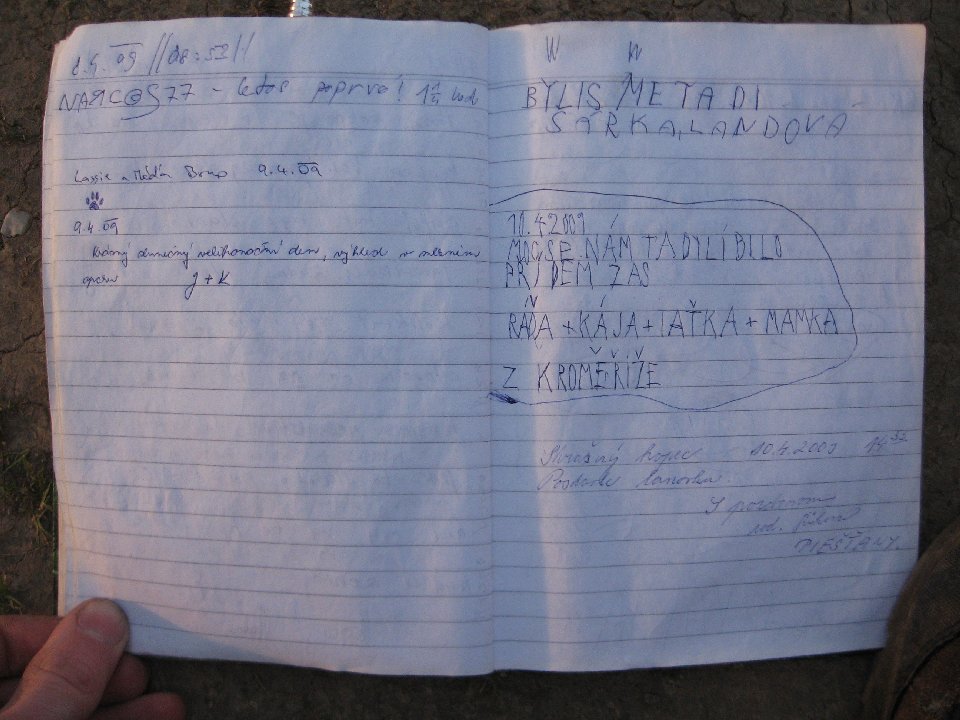 8.4. 09 //08:52//
NARC@S77 - letos poprvé! 1 1/4 hod
Lassie a Brno 9.4.09
9.4.09
Krásný slunečný velikonoční den, výhled v mlžném
oparu J+K
BYLI SME TADI
ŠÁRKA, LANDOVÁ
10.4.2009
MOC SE NÁM TADY LÍBILO
PŘÍDEM ZAS
RÁĎA + KÁJA + TAŤKA + MAMKA
Z KROMĚŘÍŽE
kopec 10.4.2009 14 32
S pozdravom
rod.
PIEŠŤANY.